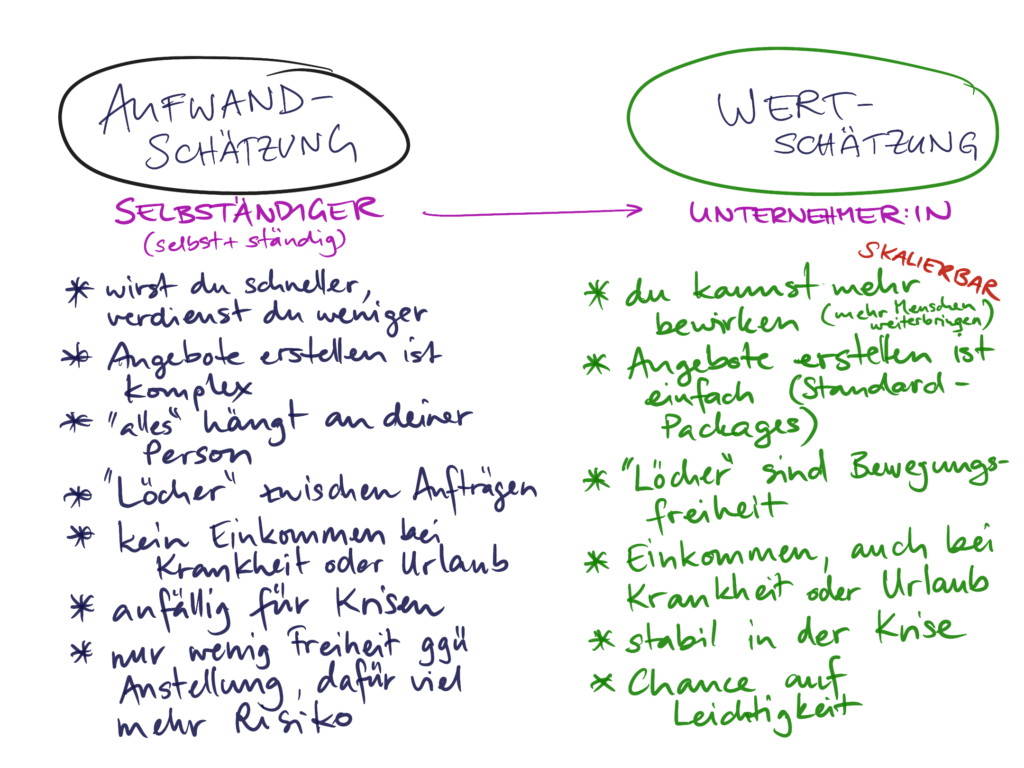 AUFWAND-
SCHÄTZUNG
SELBSTÄNDIGER
(selbst + ständig)
* wirst du schneller,
verdienst du weniger
* Angebote erstellen ist
komplex
* "alles" hängt an deiner
Person
* "Löcher" zwischen Aufträgen
* kein Einkommen bei
Krankheit oder Urlaub
* anfällig für Krisen
* nur wenig Freiheit ggü
Anstellung, dafür viel
mehr Risiko
WERT-
SCHÄTZUNG
UNTERNEHMER:IN
SKALIERBAR
* du kannst mehr
bewirken (mehr Menschen
weiterbringen)
* Angebote erstellen ist
einfach (Standard-
Packages)
* "Löcher" sind Bewegungs-
freiheit
* Einkommen, auch bei
Krankheit oder Urlaub
* stabil in der Krise
* Chance auf
Leichtigkeit